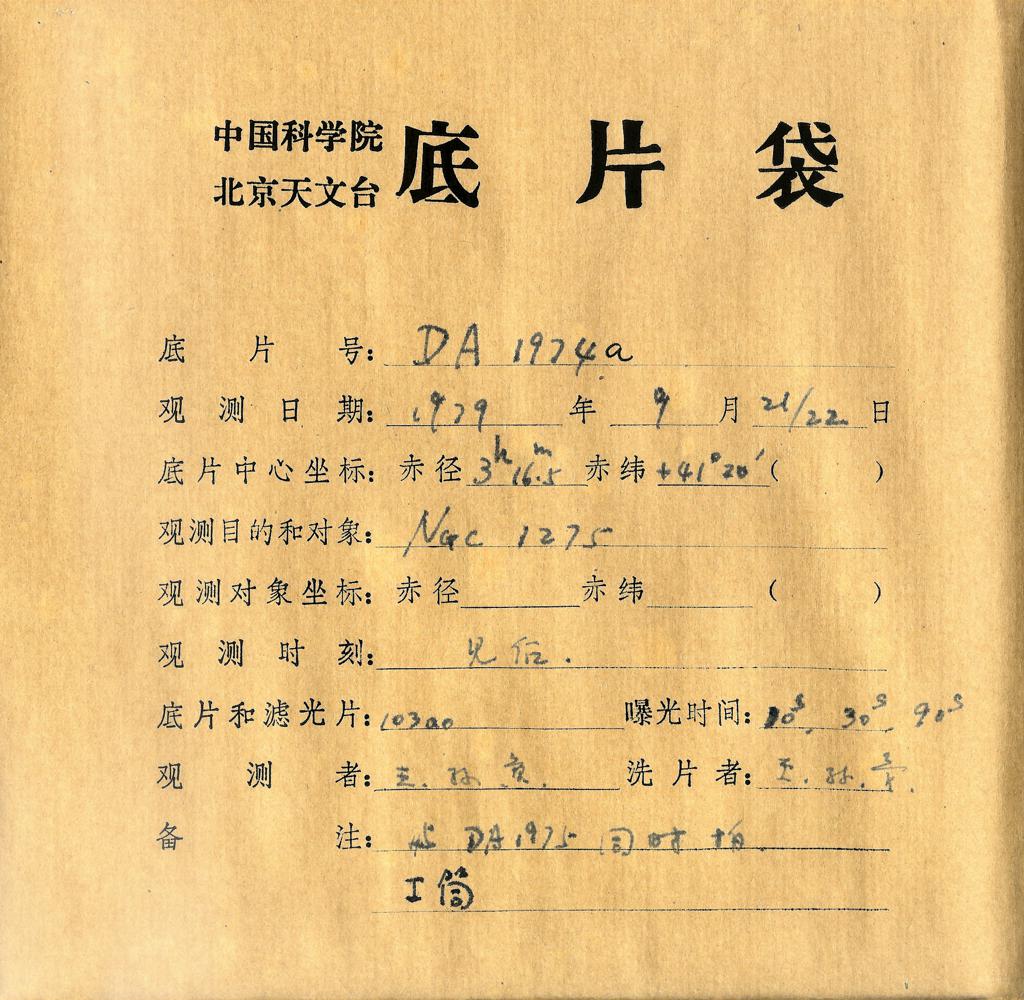 中国科学院
北京天文台 底片袋
底片号: DA 1974a
观测日期: 1979 年 9 月 21/22 日
底片中心坐标: 赤径 3h 16m.5 赤纬 +41°20′ ( )
观测目的和对象: NGC 1275
观测对象坐标: 赤径 赤纬 ( )
观测时刻: 见后.
底片和滤光片: 103a0 曝光时间: 10s, 30s, 90s
观测者: 王. 孙 洗片者: 王. 孙.
备注: 与 DA 1975 同时拍.
I 筒